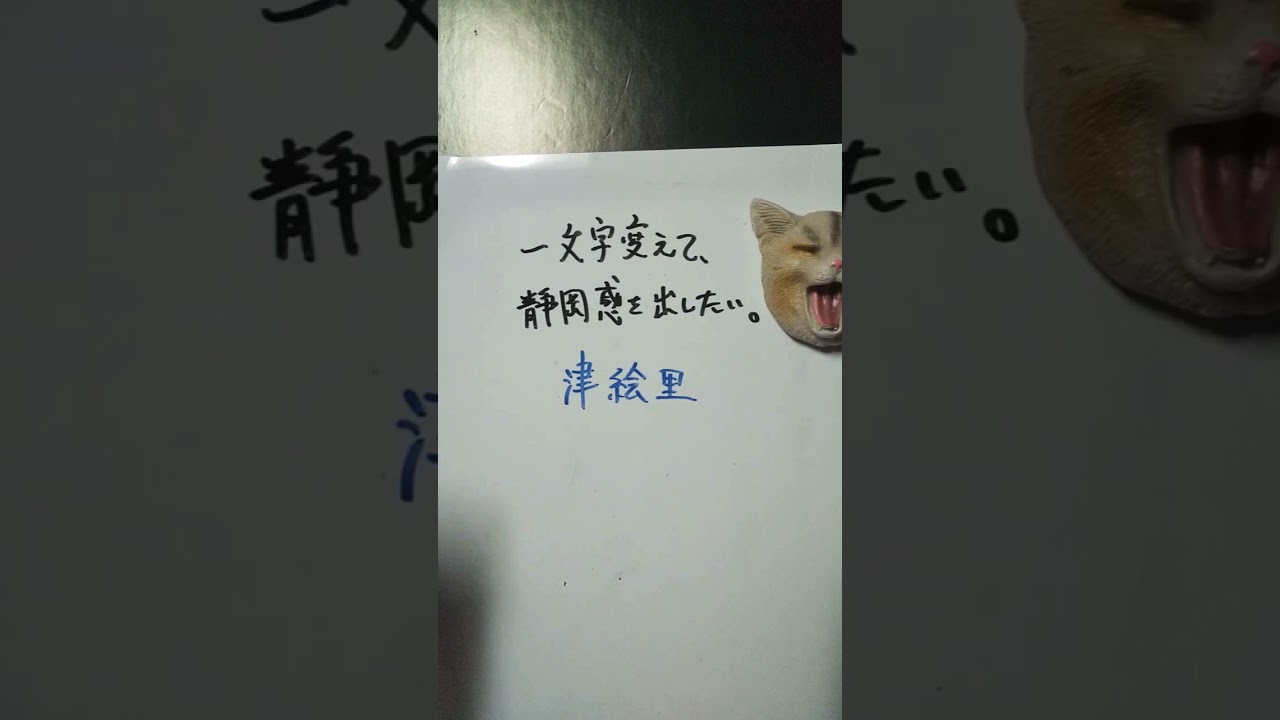 一文字変えて、
静岡惑を出したい。
津絵里